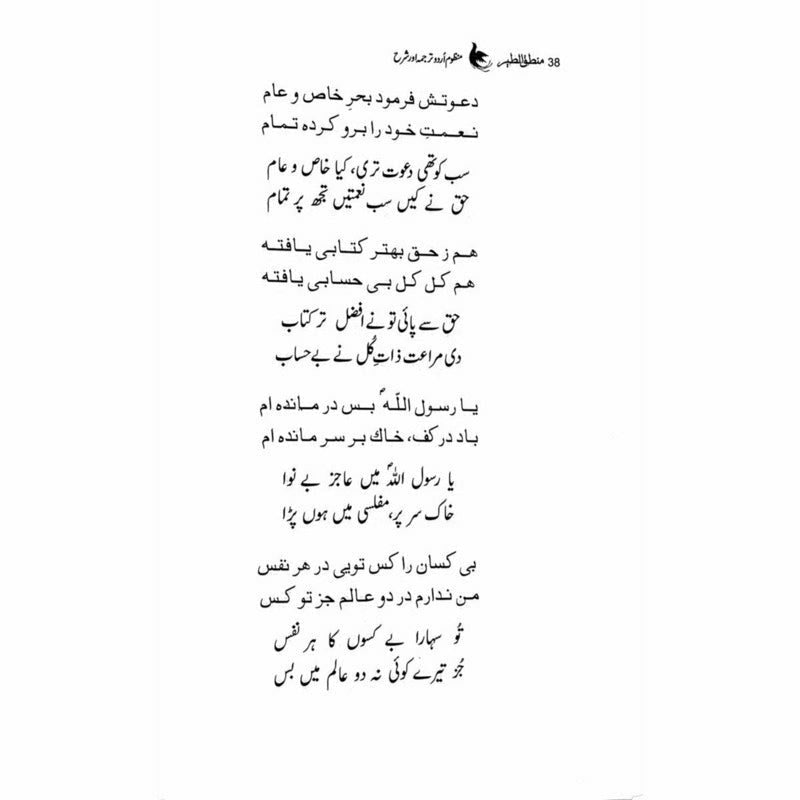 38 منطق الطیر منظوم اُردو ترجمہ اور شرح
دعوتش فرمود بحرِ خاص و عام
نعمتِ خود را برو کرده تمام
سب کو تھی دعوت تری، کیا خاص و عام
حق نے کیں سب نعمتیں تجھ پر تمام
هم ز حق بهتر کتابی یافته
هم کل کل بی حسابی یافته
حق سے پائی تو نے افضل تر کتاب
دی مراعت ذاتِ کُل نے بے حساب
یا رسول اللّٰه ؐ بس در مانده ام
باد در کف، خاك بر سر مانده ام
یا رسول اللہؐ میں عاجز بے نوا
خاک سر پر، مفلسی میں ہوں پڑا
بی کسان را کس تویی در هر نفس
من ندارم در دو عالم جز تو کس
تُو سہارا بے کسوں کا ہر نفس
جُز تیرے کوئی نہ دو عالم میں بس